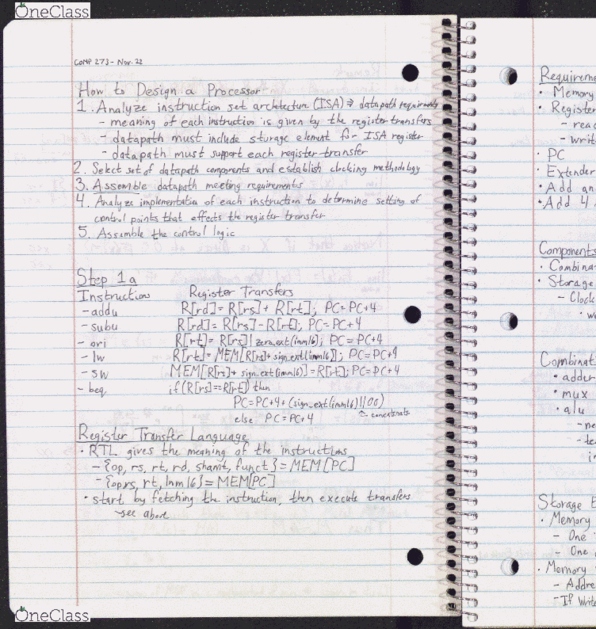 OneClass
COMP 273 - Nov. 22
How to Design a Processor
1. Analyze instruction set architecture (ISA) ⇒ datapath requirements
- meaning of each instruction is given by the register transfers
- datapath must include storage element for ISA register
- datapath must support each register transfer
2. Select set of datapath components and establish clocking methodology
3. Assemble datapath meeting requirements
4. Analyze implementation of each instruction to determine setting of
control points that effects the register transfer
5. Assemble the control logic
Step 1a
Instruction Register Transfers
- addu R[rd] = R[rs] + R[rt]; PC = PC+4
- subu R[rd] = R[rs] - R[rt]; PC = PC+4
- ori R[rt] = R[rs] | zero_ext(imm16); PC = PC+4
- lw R[rt] = MEM[R[rs] + sign_ext(imm16)]; PC = PC+4
- sw MEM[R[rs] + sign_ext(imm16)] = R[rt]; PC = PC+4
- beq if (R[rs] == R[rt]) then
PC = PC+4 + (sign_ext(imm16) || 00)
else PC = PC+4
concatenate
Register Transfer Language
• RTL gives the meaning of the instructions
- {op, rs, rt, rd, shamt, funct} = MEM[PC]
- {op, rs, rt, Imm16} = MEM[PC]
• start by fetching the instruction, then execute transfers
see above
Requireme
• Memory
• Register
- read
- write
• PC
• Extender
• Add an
• Add 4
Components
• Combina
• Storage
- Clock
Combinat
• adder
• mux
• alu
Storage E
• Memory
- One
- One
• Memory
- Addre
- If write
OneClass